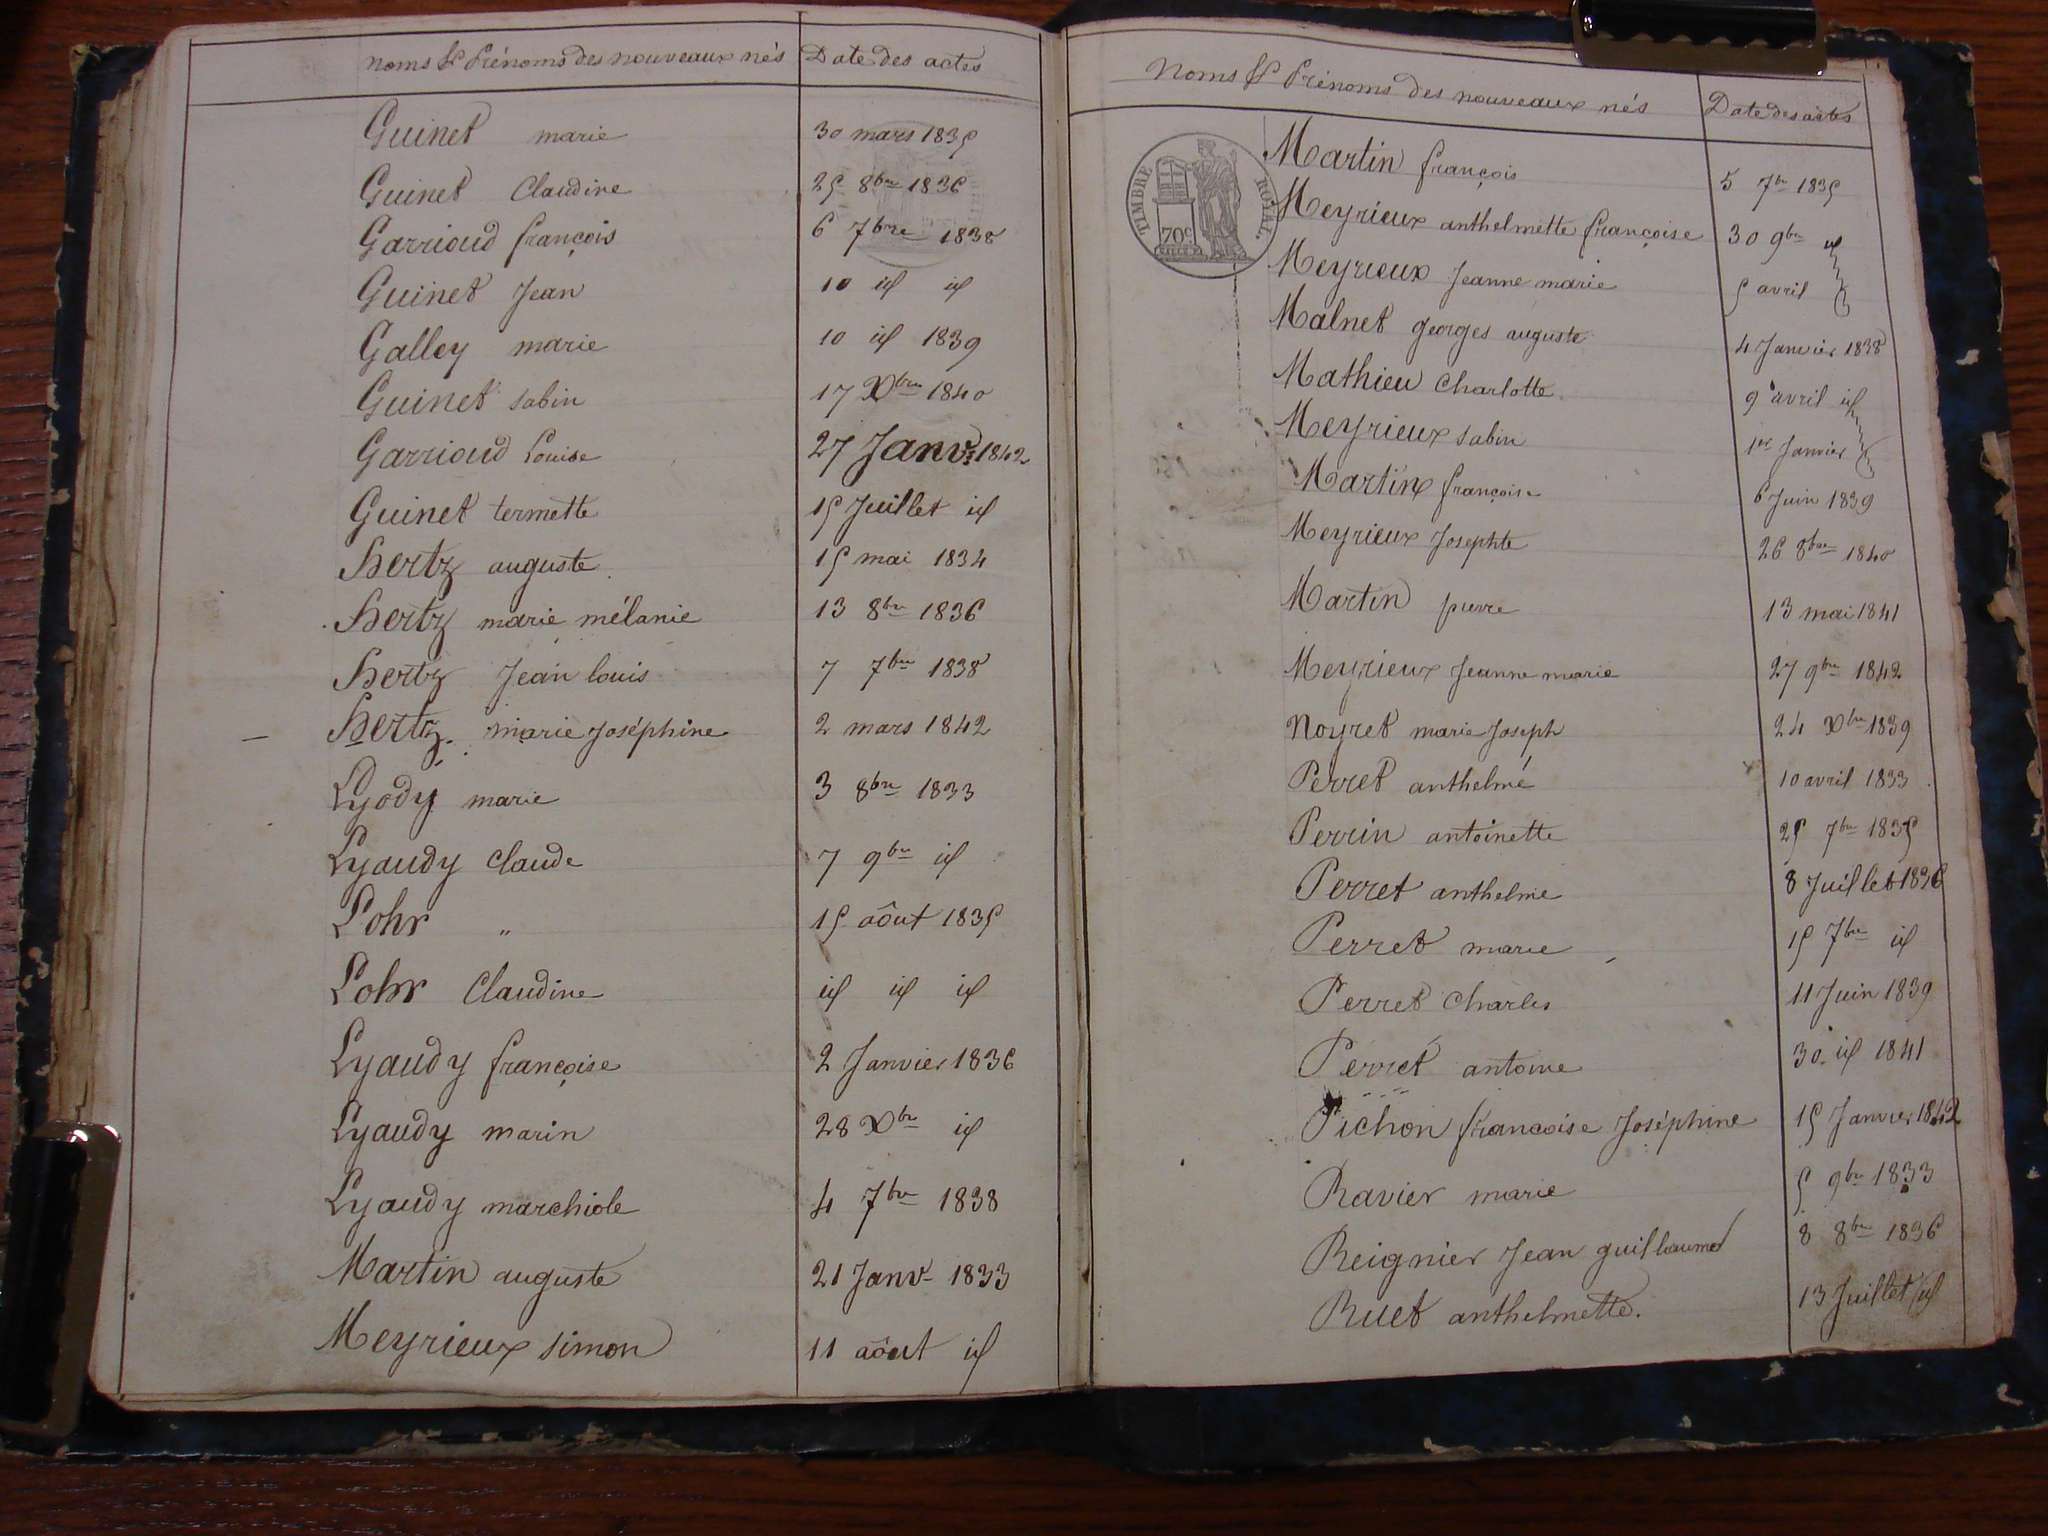 noms & Prénoms des nouveaux nés Date des actes
Guinet marie 30 mars 1835
Guinet Claudine 25 8bre 1836
Garrioud françois 6 7bre 1838
Guinet Jean 10 id id
Galley marie 10 id 1839
Guinet sabin 17 Xbre 1840
Garrioud Louise 27 Janv. 1842
Guinet termette 15 Juillet id
hertz auguste 15 mai 1834
hertz marie mélanie 13 8bre 1836
hertz Jean louis 7 7bre 1838
hertz marie Joséphine 2 mars 1842
Lyody marie 3 8bre 1833
Lyaudy Claude 7 9bre id
Lohr " 15 aôut 1835
Lohr Claudine id id id
Lyaudy françoise 2 Janvier 1836
Lyaudy marin 28 Xbre id
Lyaudy marchiole 4 7bre 1838
Martin auguste 21 Janv. 1833
Meyrieux simon 11 aôut id
Noms & Prénoms des nouveaux nés Date des actes
TIMBRE ROYAL.
70c
Martin françois 5 7bre 1835
Meyrieux anthelmette françoise 30 9bre id
Meyrieux Jeanne marie 5 avril
Malnet georges auguste 4 Janvier 1838
Mathieu Charlotte 9 avril id
Meyrieux sabin 1er Janvier
Martin françoise 6 Juin 1839
Meyrieux Josephte 26 8bre 1840
Martin pierre 13 mai 1841
Meyrieux Jeanne marie 27 9bre 1842
Noyret marie Joseph 24 Xbre 1839
Perret anthelme 10 avril 1833
Perrin antoinette 25 7bre 1835
Perret anthelme 8 Juillet 1836
Perret marie 15 7bre id
Perret Charles 11 Juin 1839
Perret antoine 30 id 1841
Pichon francoise Joséphine 15 Janvier 1842
Ravier marie 5 9bre 1833
Reignier Jean guillaume 8 8bre 1836
Ruet anthelmette. 13 Juillet id